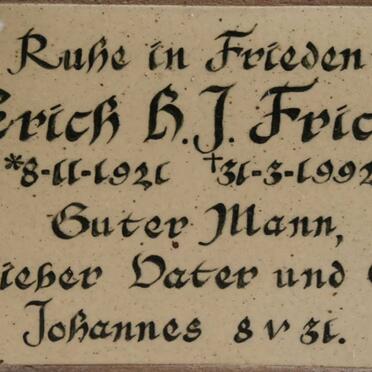 Ruhe in Frieden
Erich H. J. Fric
*8-11-1921 †31-3-1992
Guter Mann,
lieber Vater und
Johannes 8 v 31.